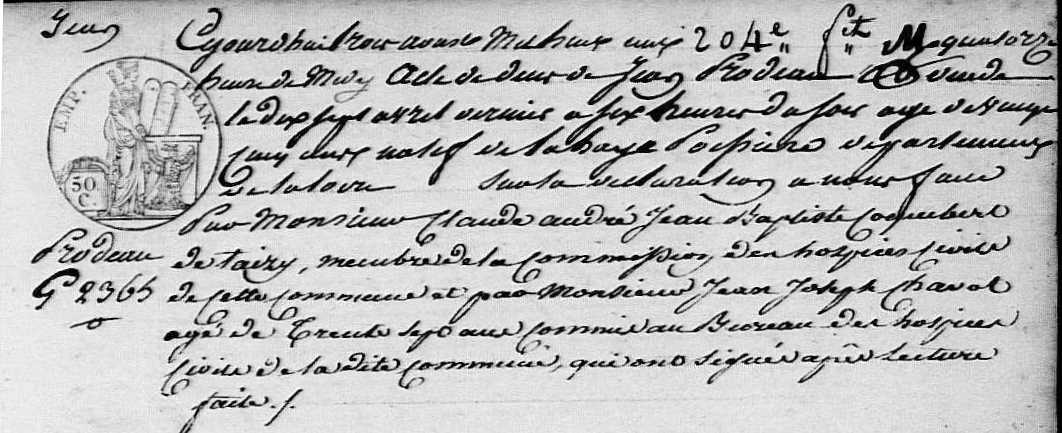 Jean
Cejourdhui trois aoust Mil huit cent 204e fet M quatorze
heure de Midy Acte de deces de Jean Prodeau décédé
le dix sept avril dernier a six heures du soir age de vingt
cinq ans natif de la haye Poissiere departement
de la loire sur la declaration a nous faite
Par Monsieur Claude andré Jean Baptiste Coquebert
de taizy, membre de la Commission des hospices Civils
de Cette Commune et par Monsieur Jean Joseph Chavot
agé de Trente sept ans Commis au Bureau des hospices
Civils de la dite Commune, qui ont signés après Lecture
faite ./.
EMP. FRAN.
50
C.
Prodeau
G 2365